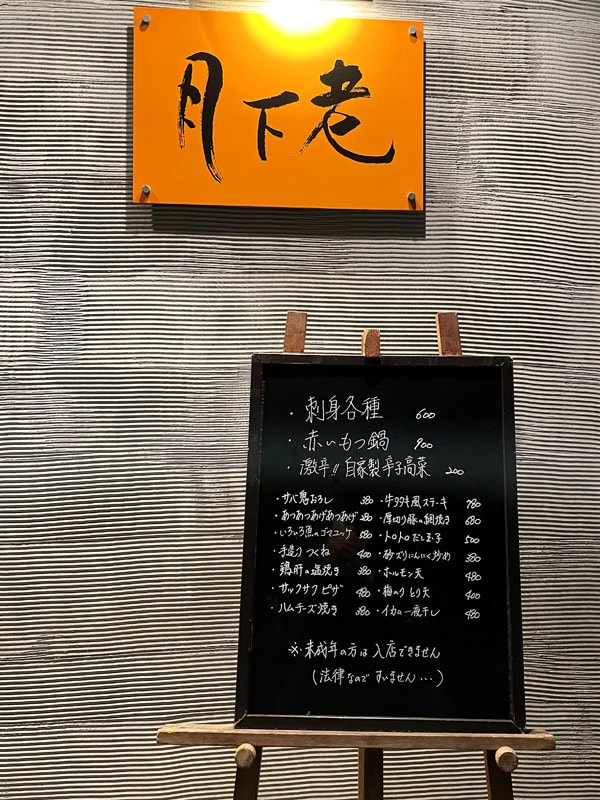 月下老
・刺身各種 600
・赤いもつ鍋 900
・激辛!! 自家製辛子高菜 200
・サバ鬼おろし 380
・あつあつあげあつあげ 280
・いろいろ魚のゴマユッケ 580
・手造りつくね 400
・鶏肝の塩焼き 380
・サックサクピザ 480
・ハムチーズ焼き 380
・牛タタキ風ステーキ 780
・厚切り豚の網焼き 680
・トロトロだし玉子 500
・砂ズリにんにく炒め 380
・ホルモン天 480
・梅のりとり天 400
・イカの一夜干し 480
※・未成年の方は入店できません
(法律なのですいません…)